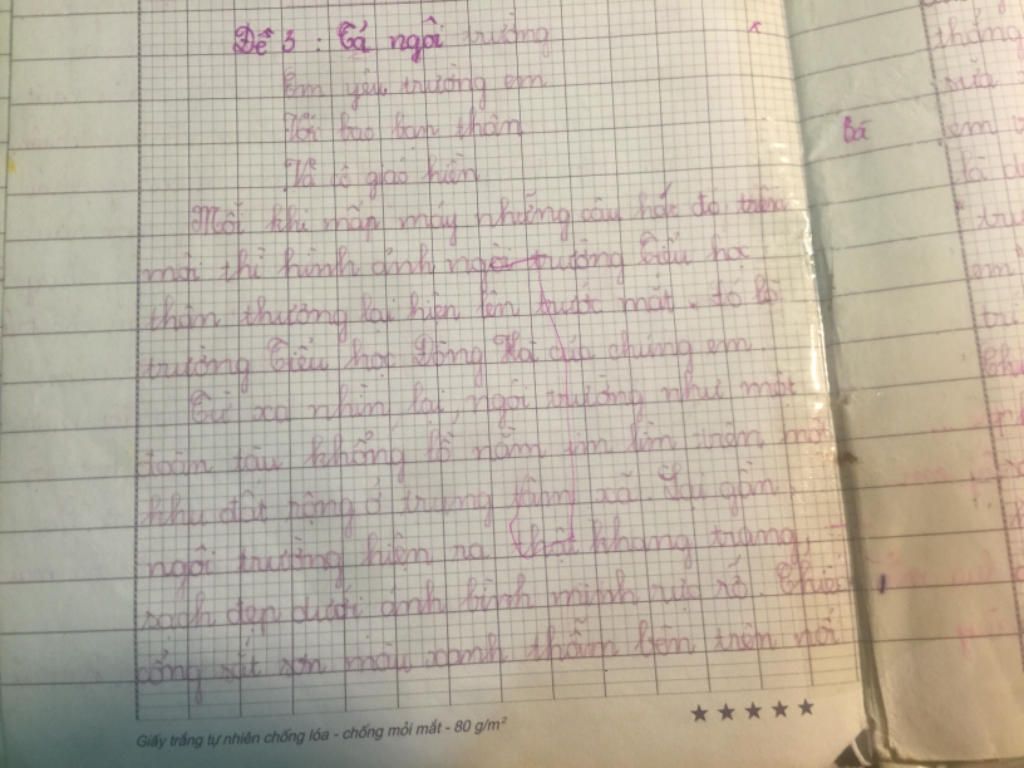 Đề 3 : Tả ngôi trường
Em yêu trường em
Với bao bạn thân
Và cô giáo hiền
Mỗi khi mấp máy những câu hát đó trên
môi thì hình ảnh ngôi trường Tiểu học
thân thương lại hiện lên trước mắt. đó là
trường Tiểu học Đông Hải của chúng em.
Từ xa nhìn lại, ngôi trường như một
toàn tàu khổng lồ nằm im lìm trên một
khu đất rộng ở trung tâm xã. Lại gần,
ngôi trường hiện ra thật khang trang,
sạch đẹp dưới ánh bình minh rực rỡ. Chiếc
cổng sắt sơn màu xanh thẫm bên trên nổi
Giấy trắng tự nhiên chống lóa - chống mỏi mắt - 80 g/m²